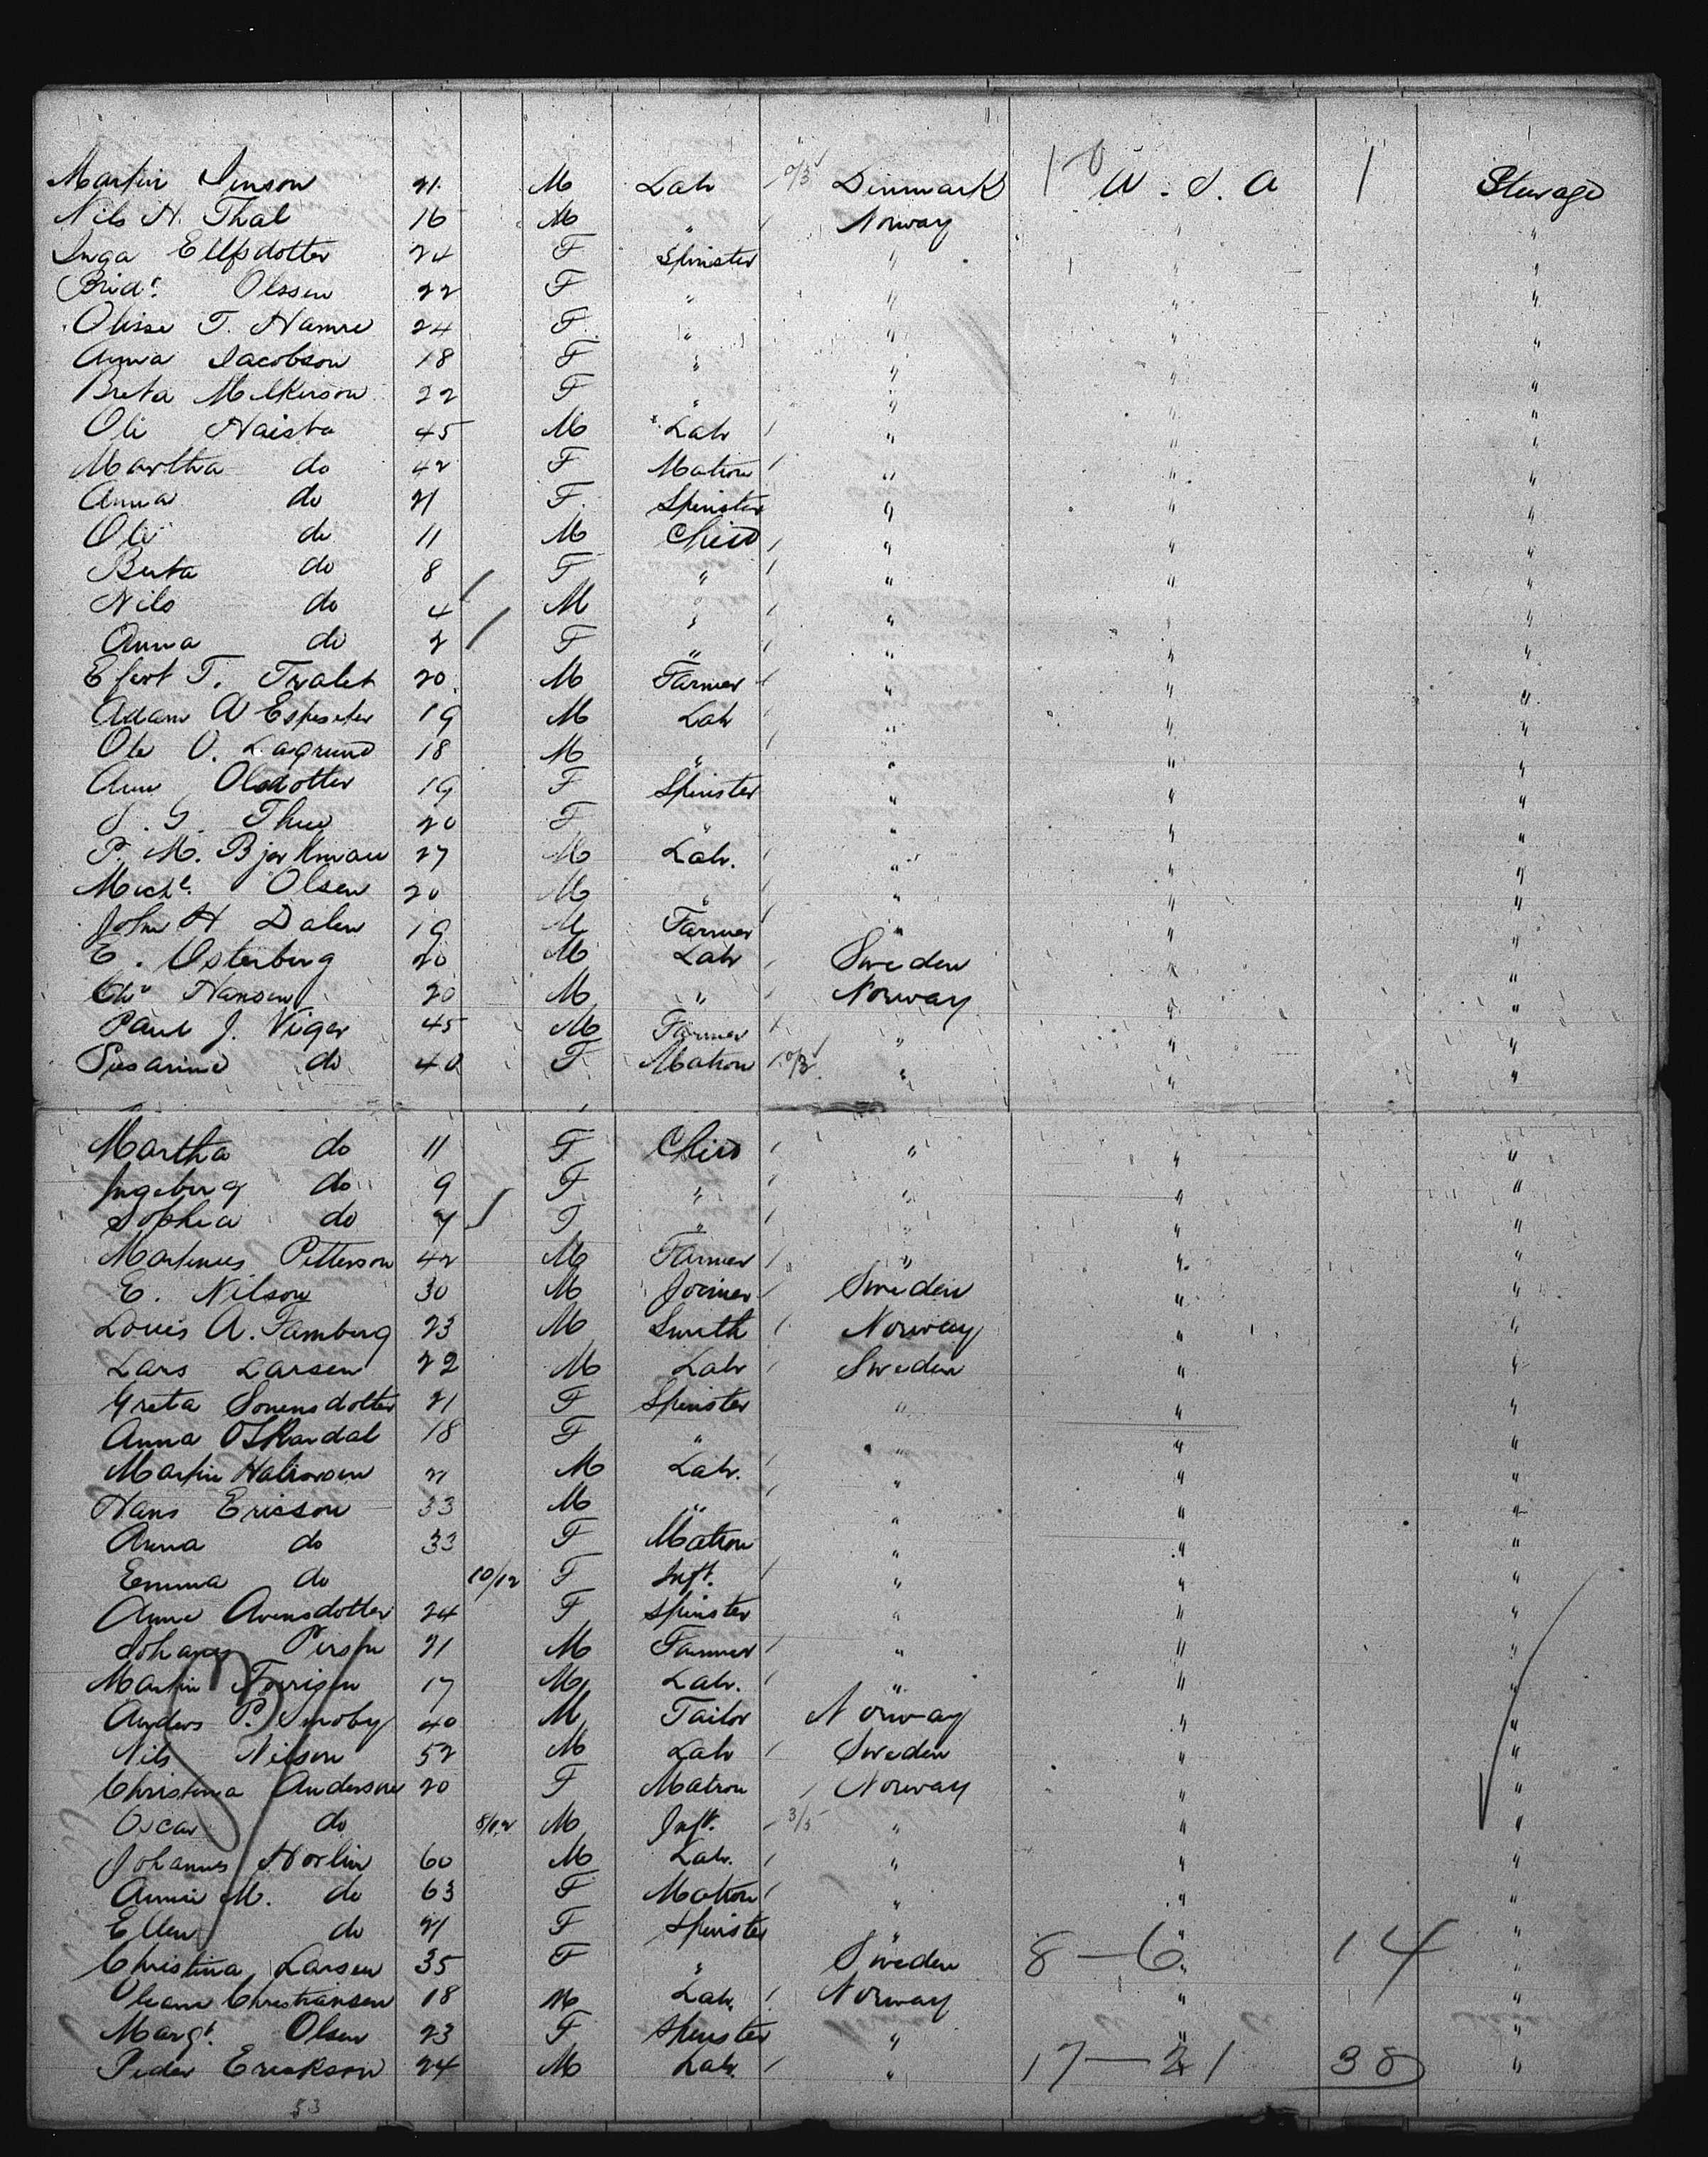 Martin Jenson 21 M Lab Denmark U.S.A 1 Steerage
Nils H. Thal 16 M " Norway " "
Inga Ellfsdotter 24 F Spinster " " "
Brid.t Olssen 22 F " " " "
Olisse T. Hamre 24 F " " " "
Anna Jacobson 18 F " " " "
Breta Melkerson 22 F " " " "
Ole Naista 45 M Lab " " "
Martha do 42 F Matron " " "
Anna do 21 F Spinster " " "
Ole do 11 M Child " " "
Berta do 8 F " " " "
Nils do 4 M " " " "
Anna do 2 F " " " "
Efert T. Tvalet 20 M Farmer " " "
Adam A 19 M Lab " " "
Ole O. Lagrund 18 M " " " "
Ann Olsdotter 19 F Spinster " " "
20 F " " " "
P. M. Bjorkman 27 M Lab. " " "
Michl. Olsen 20 M " " " "
John H Dalen 19 M Farmer " " "
E. Osterberg 20 M Lab Sweden " "
Chr Hansen 20 M " Norway " "
Paul J. Viger 45 M Farmer " " "
Susanne do 40 F Matron " " "
Martha do 11 F Child " " "
Ingeburg do 9 F " " " "
Sophia do 7 F " " " "
Martinus Petterson 42 M Farmer " " "
E. Nilson 30 M Joiner Sweden " "
Louis A. Famberg 23 M Smith Norway " "
Lars Larsen 22 M Lab Sweden " "
Greta Sonensdotter 21 F Spinster " " "
Anna O Skardal 18 F " " " "
Martin Halvorsen 21 M Lab. " " "
Hans Ericson 33 M " " " "
Anna do 33 F Matron " " "
Emma do 10/12 F Inft. " " "
Anne Avensdotter 24 F Spinster " " "
Johan Person 21 M Farmer " " "
Martin 17 M Lab. " " "
Anders P. Smoby 40 M Tailor Norway " "
Nils Nilson 52 M Lab Sweden " "
Christina Anderson 20 F Matron Norway " "
Oscar do 8/12 M Inft. " " "
Johannes Norlin 60 M Lab. " " "
Annie M. do 63 F Matron " " "
Ellen do 21 F Spinster " " "
Christina Larsen 35 F " Sweden 8-6 " 14 "
Oleane Christiansen 18 M Lab. Norway " "
Margt. Olsen 23 F Spinster " " "
Peder Erickson 24 M Lab. " 17-21 38 "
53